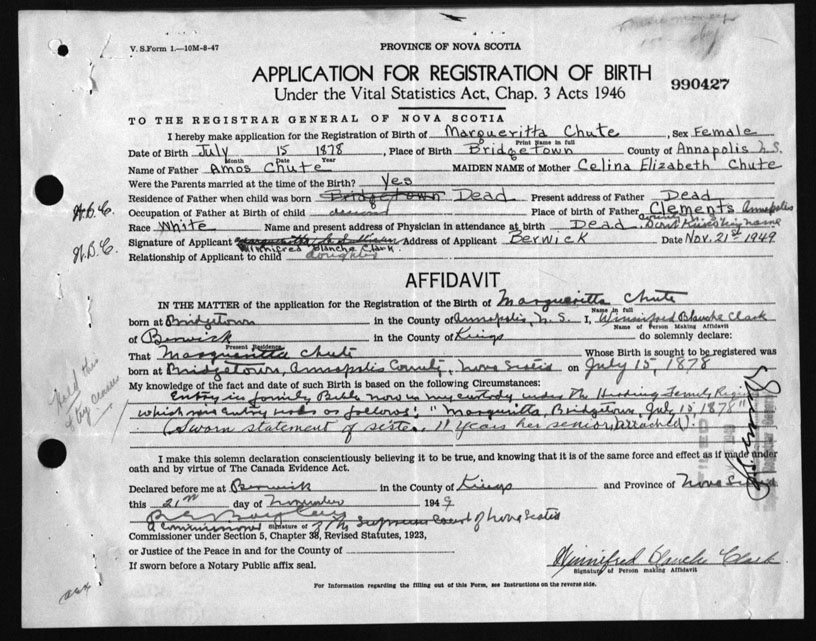 V. S. Form 1.—10M-8-47
PROVINCE OF NOVA SCOTIA
APPLICATION FOR REGISTRATION OF BIRTH
Under the Vital Statistics Act, Chap. 3 Acts 1946
990427
TO THE REGISTRAR GENERAL OF NOVA SCOTIA
I hereby make application for the Registration of Birth of Margueritta Chute, Sex Female
Print Name in full
Date of Birth July 15 1878, Place of Birth Bridgetown County of Annapolis N.S.
Month Date Year
Name of Father Amos Chute MAIDEN NAME of Mother Celina Elizabeth Chute
Were the Parents married at the time of the Birth? Yes
Residence of Father when child was born Bridgetown Dead Present address of Father Dead
Occupation of Father at Birth of child Place of birth of Father Clements Annapolis
Race White Name and present address of Physician in attendance at birth Dead. Don't Know his name
Signature of Applicant Winnifred Blanche Clark Address of Applicant Berwick Date Nov. 21st 1949
Relationship of Applicant to child daughter
AFFIDAVIT
IN THE MATTER of the application for the Registration of the Birth of Margueritta Chute
Name in full
born at Bridgetown in the County of Annapolis, N.S. I, Winnifred Blanche Clark
Name of Person Making Affidavit
of Berwick in the County of Kings do solemnly declare:
Present Residence
That Margueritta Chute Whose Birth is sought to be registered was
born at Bridgetown, Annapolis County, Nova Scotia on July 15, 1878
My knowledge of the fact and date of such Birth is based on the following Circumstances:
Entry in family Bible now in my custody under the Heading Family Register
which said entry reads as follows: "Margueritta, Bridgetown, July 15, 1878"
(Sworn statement of sister, 11 years her senior, attached).
I make this solemn declaration conscientiously believing it to be true, and knowing that it is of the same force and effect as if made under
oath and by virtue of The Canada Evidence Act.
Declared before me at Berwick in the County of Kings and Province of Nova Scotia
this 21st day of November 1949
A Commissioner of The Supreme Court of Nova Scotia
Signature of
Commissioner under Section 5, Chapter 38, Revised Statutes, 1923,
or Justice of the Peace in and for the County of
If sworn before a Notary Public affix seal.
Winnifred Blanche Clark
Signature of Person making Affidavit
For Information regarding the filling out of this Form, see Instructions on the reverse side.